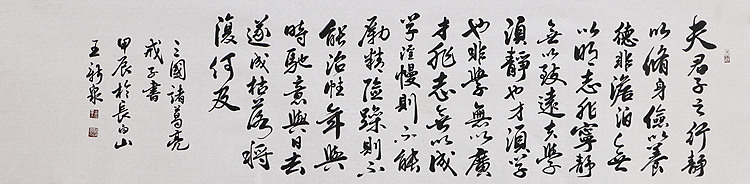 夫君子之行静
以脩身儉以養
德非澹泊無
以明志非寧静
無以致遠夫學
須静也才須學
也非學無以廣
才非志無以成
學淫慢則不能
勵精險躁則不
能治性年與
時馳意與日去
遂成枯落將
復何及
三國諸葛亮
戒子書
甲辰於長白山
王新泉